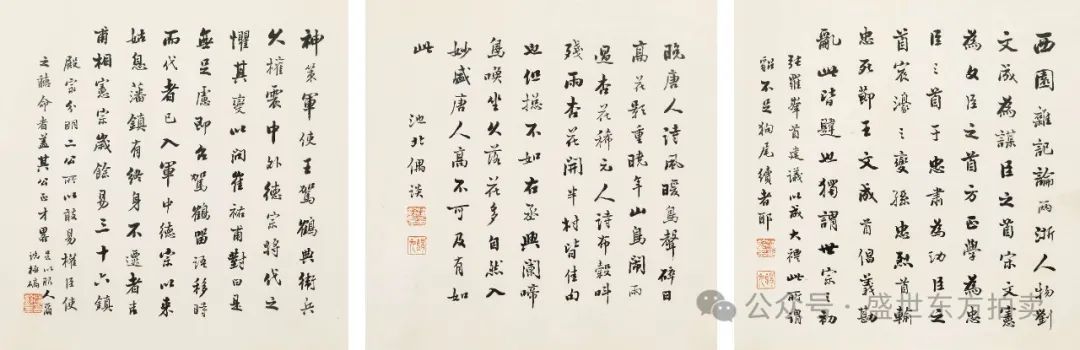 西園雜記論兩浙人物劉
文成為謀臣之首宋文憲
為文臣之首方正學為忠
臣之首于忠肅為功臣之
首宸濠之變孫忠烈首輸
忠死節王文成首倡義勘
亂此皆也獨謂世宗之初
張羅峯首建議以成大禮此所謂
貂不足狗尾續者耶
晚唐人詩風暖鳥聲碎日
高花影重曉來山鳥鬧雨
過杏花稀元人詩布穀叫
殘雨杏花開半村皆佳句
也但總不如右丞興闌啼
鳥喚坐久落花多自然入
妙盛唐人高不可及有如
此
池北偶談
神策軍使王駕鶴典衛兵
久權震中外德宗將代之
懼其變以問崔祐甫對曰是
無足慮即召駕鶴留語移時
而代者已入軍中德宗以來
姑息藩鎮有終身不遷者吉
甫相憲宗歲餘易三十六鎮
殿最分明二公所以敢易權臣使
之聽命者蓋其公正才畧
足以服人爾
公众号 · 盛世东方拍卖